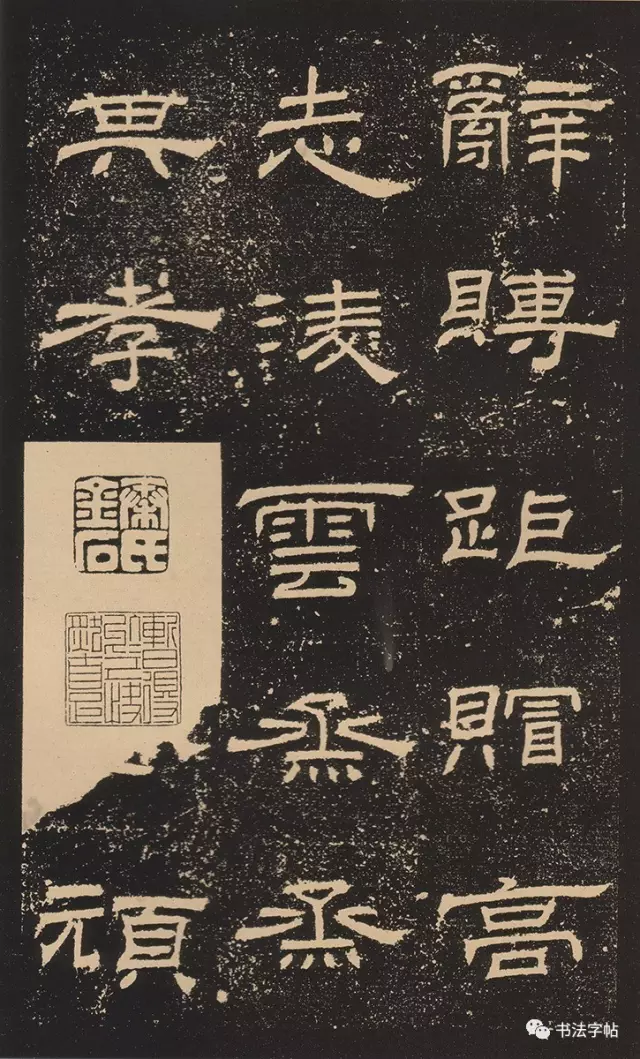 辭賻距賵高
志淩雲烝烝
其孝
頑
书法字帖